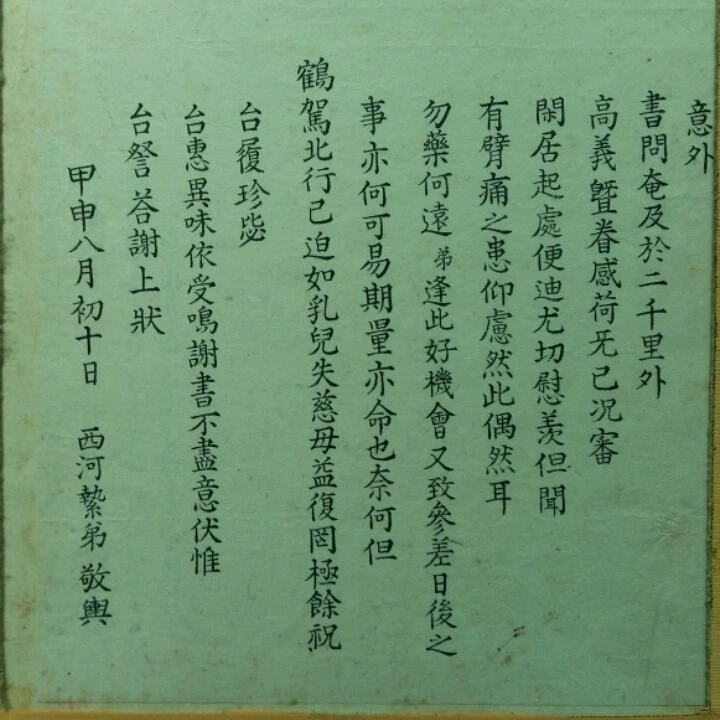 意外
書問奄及於二千里外
高義曁眷感荷无已况審
閑居起處便迪尤切慰羨但聞
有臂痛之患仰慮然此偶然耳
勿藥何遠弟逢此好機會又致參差日後之
事亦何可易期量亦命也奈何但
鶴駕北行已迫如乳兒失慈母益復罔極餘祝
台履珍毖
台惠異味依受鳴謝書不盡意伏惟
台詧荅謝上狀
甲申八月初十日 西河縶弟敬輿